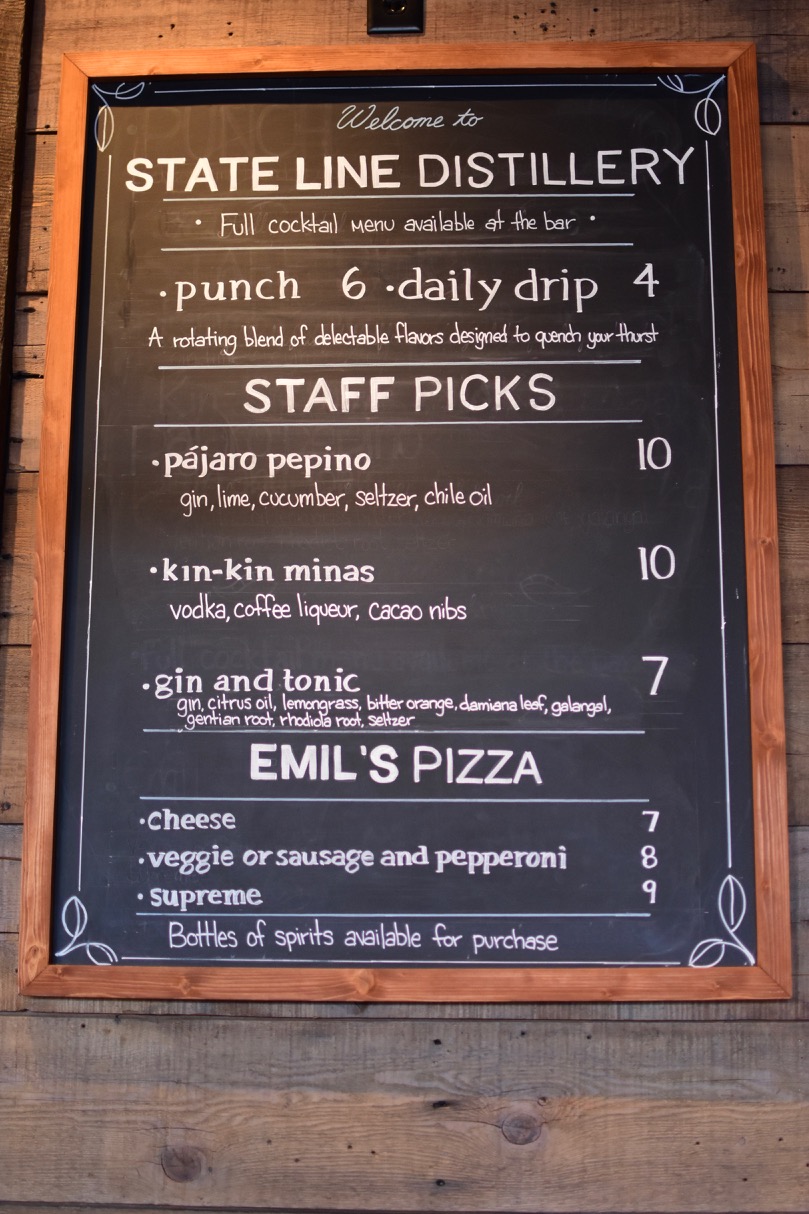 Welcome to
STATE LINE DISTILLERY
• Full cocktail menu available at the bar •
•punch 6 •daily drip 4
A rotating blend of delectable flavors designed to quench your thirst
STAFF PICKS
•pájaro pepino 10
gin, lime, cucumber, seltzer, chile oil
•kin-kin minas 10
vodka, coffee liqueur, cacao nibs
•gin and tonic 7
gin, citrus oil, lemongrass, bitter orange, damiana leaf, galangal,
gentian root, rhodiola root, seltzer
EMIL'S PIZZA
•cheese 7
•veggie or sausage and pepperoni 8
•supreme 9
Bottles of spirits available for purchase